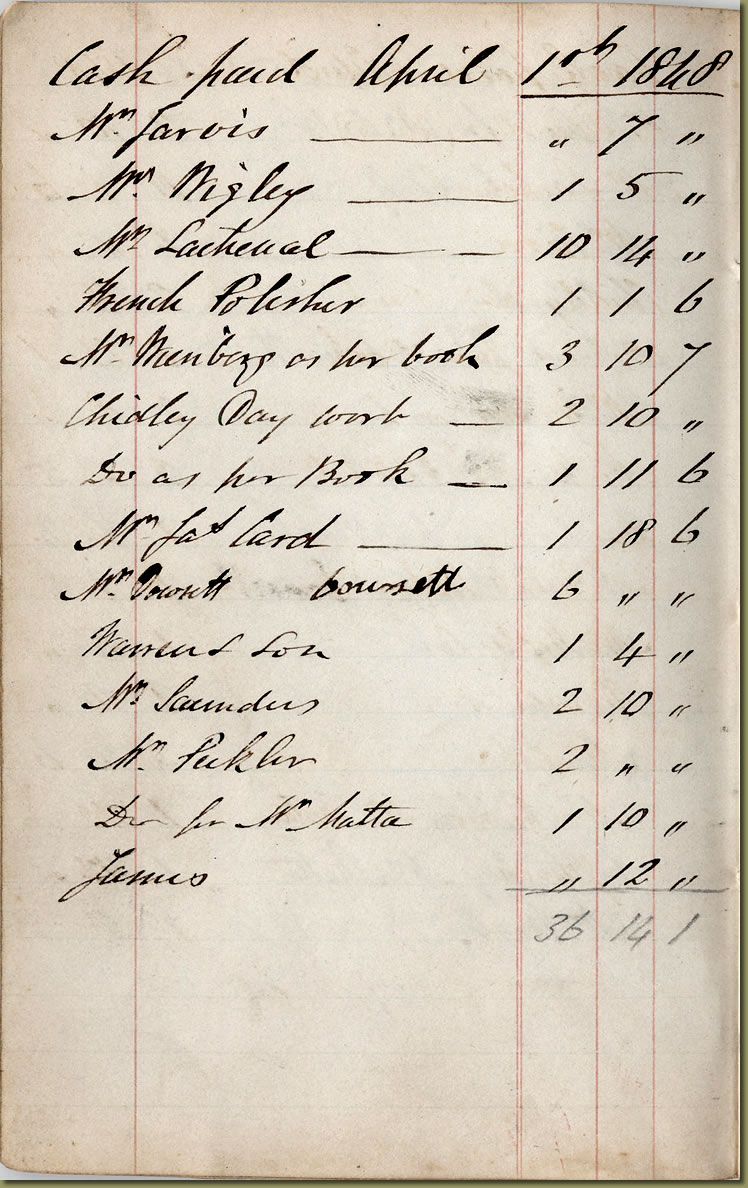 Cash paid April 1st 1848
Mr. Jarvis — „ 7 „
Mr. Wigley — 1 5 „
Mr. Lachenal — — 10 14 „
French Polisher 1 1 6
Mr. as per book 3 10 7
Chidley Day work — 2 10 „
Do as per Book — 1 11 6
Mr. Jas Card — 1 18 6
Mr. Dowsett Dowsett 6 „ „
Son 1 4 „
Mr. Saunders 2 10 „
Mr. 2 „ „
Do for Mr. Matta 1 10 „
James „ 12 „
36 14 1